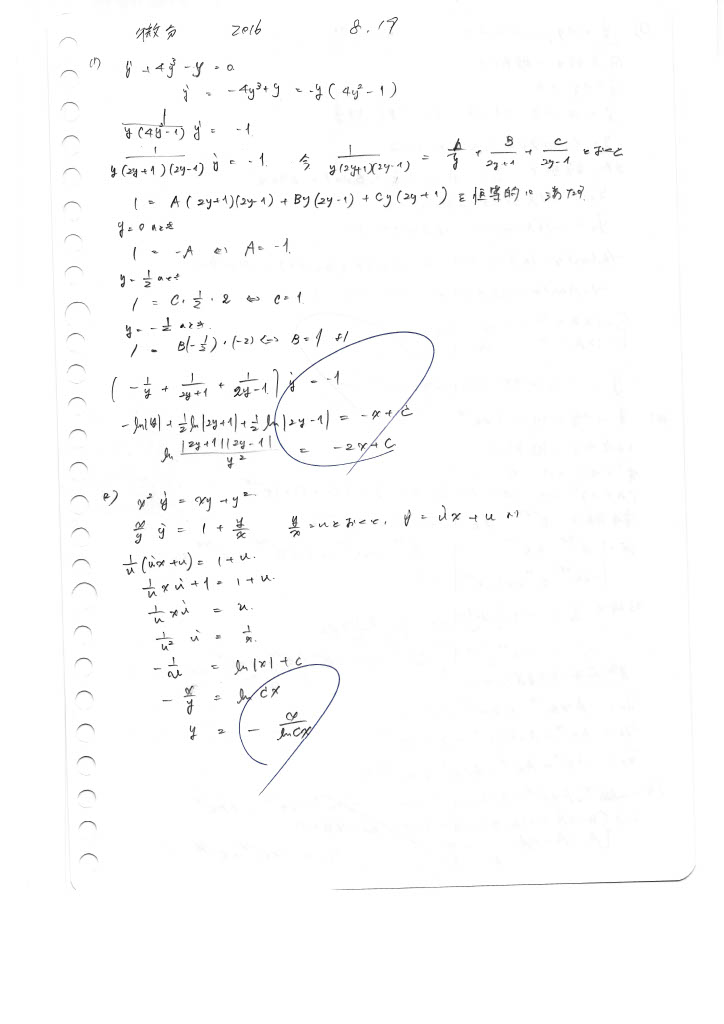 微分 2016 8.19
(1) ẏ + 4y³ - y = 0
ẏ = -4y³ + y = -y(4y² - 1)
1/(y(4y² - 1)) ẏ = -1.
1/(y(2y+1)(2y-1)) ẏ = -1. 今 1/(y(2y+1)(2y-1)) = A/y + B/(2y+1) + C/(2y-1) とおくと
1 = A(2y+1)(2y-1) + By(2y-1) + Cy(2y+1) を恒等的に満たす
y = 0 のとき
1 = -A ⇔ A = -1.
y = 1/2 のとき
1 = C · 1/2 · 2 ⇔ C = 1.
y = -1/2 のとき.
1 = B(-1/2) · (-2) ⇔ B = 1 より
(-1/y + 1/(2y+1) + 1/(2y-1)) ẏ = -1
-ln|y| + 1/2 ln|2y+1| + 1/2 ln|2y-1| = -x + C
ln |2y+1||2y-1|/y² = -2x + C
(2) x² ẏ = xy + y².
x/y ẏ = 1 + y/x y/x = u とおくと, ẏ = u̇x + u より
1/u (u̇x + u) = 1 + u.
1/u x u̇ + 1 = 1 + u.
1/u x u̇ = u.
1/u² u̇ = 1/x.
-1/u = ln|x| + C
-x/y = ln Cx
y = - x/ln Cx